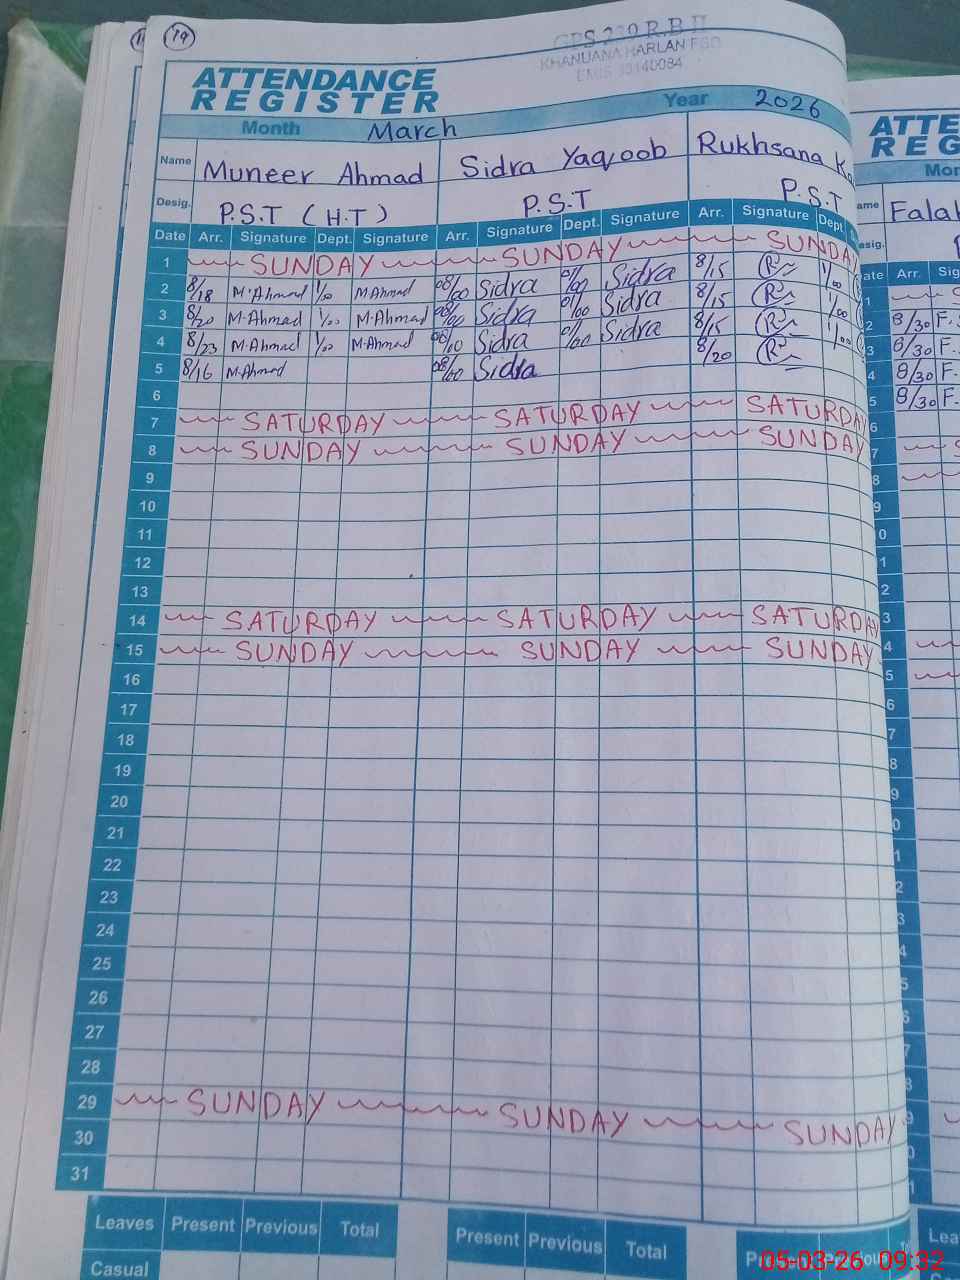 19
GPS 230 R.B II
KHANUANA HARLAN FSD
EMIS 33140084
ATTENDANCE
REGISTER
Month March Year 2026
Name Muneer Ahmad Sidra Yaqoob Rukhsana
Desig. P.S.T (H.T) P.S.T P.S.T
Date Arr. Signature Dept. Signature Arr. Signature Dept. Signature Arr. Signature Dept.
1 SUNDAY SUNDAY SUNDAY
2 8/18 M.Ahmad 1/00 M.Ahmad 08/00 Sidra 01/00 Sidra 8/15 R 1/00
3 8/20 M.Ahmad 1/00 M.Ahmad 08/00 Sidra 01/00 Sidra 8/15 R 1/00
4 8/23 M.Ahmad 1/00 M.Ahmad 08/10 Sidra 01/00 Sidra 8/15 R 1/00
5 8/16 M.Ahmad 08/00 Sidra 8/20 R
6
7 SATURDAY SATURDAY SATURDAY
8 SUNDAY SUNDAY SUNDAY
9
10
11
12
13
14 SATURDAY SATURDAY SATURDAY
15 SUNDAY SUNDAY SUNDAY
16
17
18
19
20
21
22
23
24
25
26
27
28
29 SUNDAY SUNDAY SUNDAY
30
31
Leaves Present Previous Total Present Previous Total
Casual
ATTE
REG
Mon
ame Falak
esig.
ate Arr. Sig
1
2 8/30 F.
3 8/30 F.
4 8/30 F.
5 8/30 F.
6
7
8
9
0
1
2
3
4
5
6
7
8
9
0
1
2
3
4
5
6
7
8
9
0
1
Lea
05-03-26 09:32